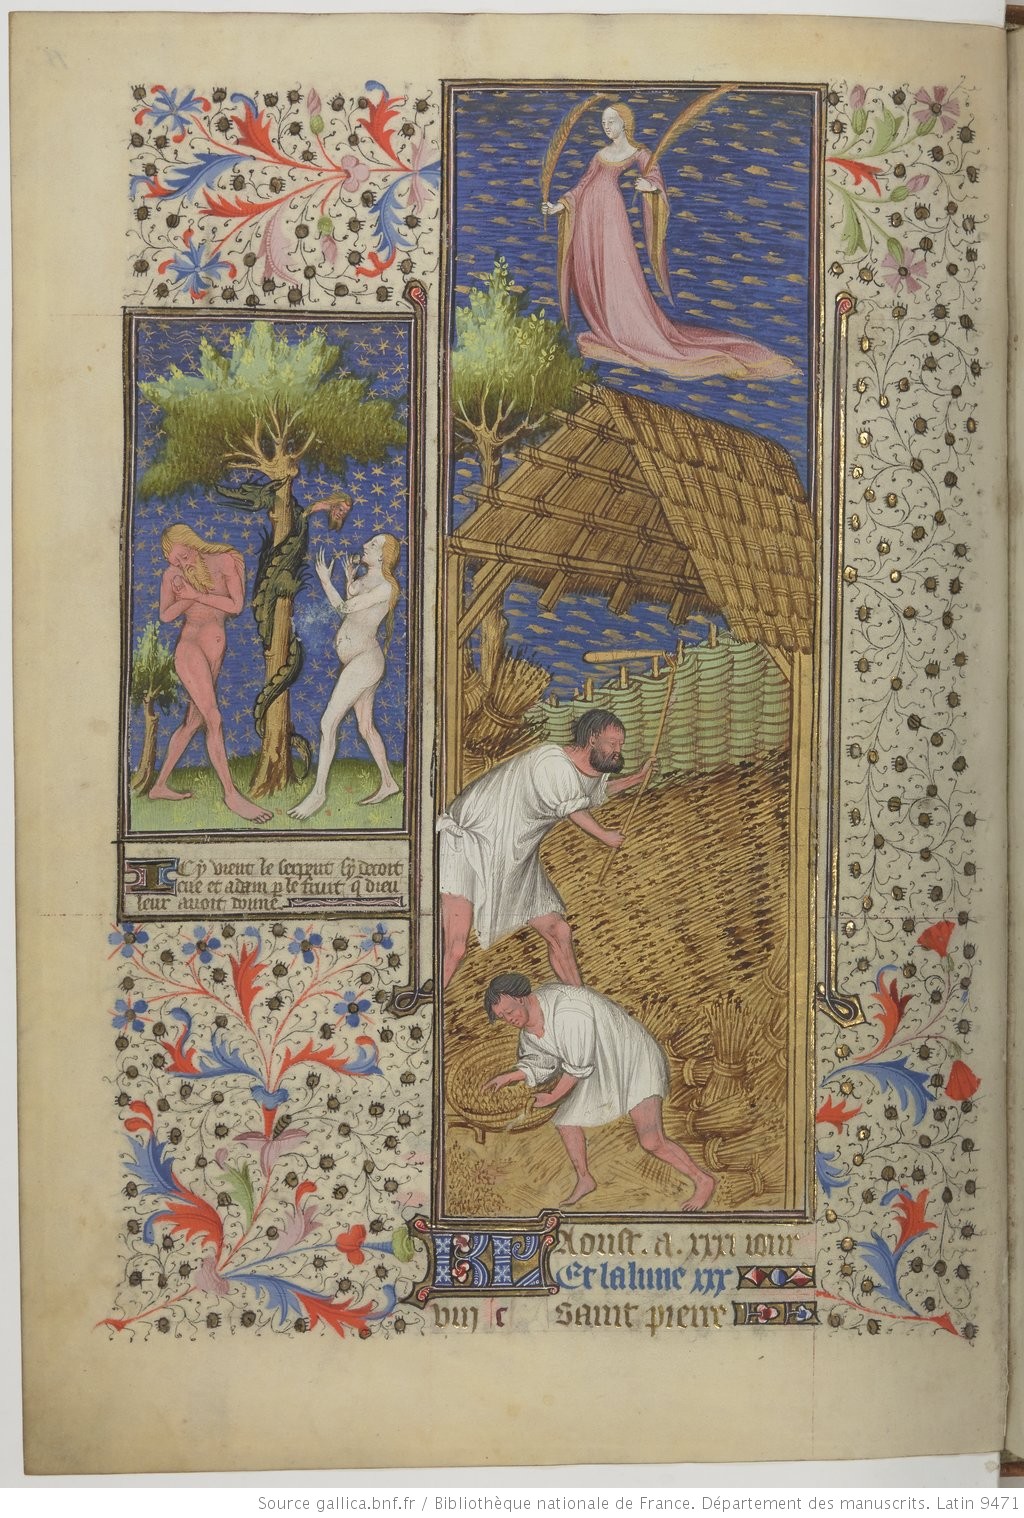 Cy vient le serpent sy decoit
eue et adam p le fruit q dieu
leur auoit donne.
KL Aoust. a. xxxi iour
Et la lune xxx
viii c saint pierre
Source gallica.bnf.fr / Bibliothèque nationale de France. Département des manuscrits. Latin 9471